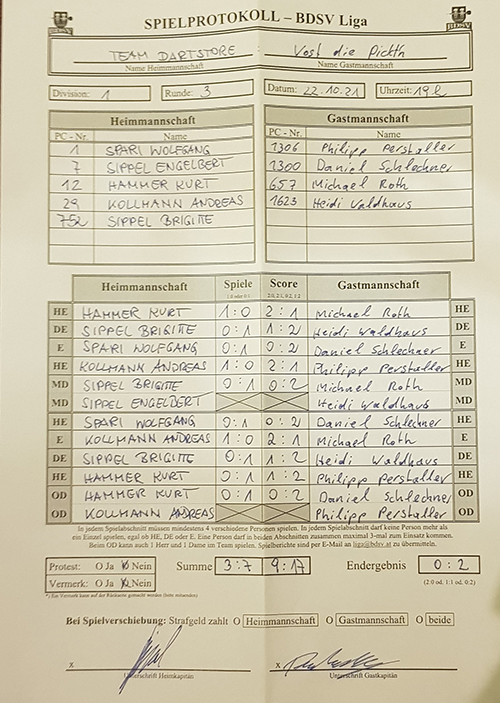 SPIELPROTOKOLL – BDSV Liga
TEAM DARTSTORE Vost die Pickt'n
Name Heimmannschaft Name Gastmannschaft
Division: 1 Runde: 3 Datum: 22.10.21 Uhrzeit: 19h
Heimmannschaft Gastmannschaft
PC - Nr. Name PC - Nr. Name
1 SPARI WOLFGANG 1306 Philipp Pershaller
7 SIPPEL ENGELBERT 1300 Daniel Schlechner
12 HAMMER KURT 657 Michael Roth
29 KOLLMANN ANDREAS 1623 Heidi Waldhaus
752 SIPPEL BRIGITTE
Heimmannschaft Spiele Score Gastmannschaft
1:0 oder 0:1 2:0, 2:1, 0:2, 1:2
HE HAMMER KURT 1:0 2:1 Michael Roth HE
DE SIPPEL BRIGITTE 0:1 1:2 Heidi Waldhaus DE
E SPARI WOLFGANG 0:1 0:2 Daniel Schlechner E
HE KOLLMANN ANDREAS 1:0 2:1 Philipp Pershaller HE
MD SIPPEL BRIGITTE 0:1 0:2 Michael Roth MD
MD SIPPEL ENGELBERT Heidi Waldhaus MD
HE SPARI WOLFGANG 0:1 0:2 Daniel Schlechner HE
E KOLLMANN ANDREAS 1:0 2:1 Michael Roth E
DE SIPPEL BRIGITTE 0:1 1:2 Heidi Waldhaus DE
HE HAMMER KURT 0:1 1:2 Philipp Pershaller HE
OD HAMMER KURT 0:1 0:2 Daniel Schlechner OD
OD KOLLMANN ANDREAS Philipp Pershaller OD
In jedem Spielabschnitt müssen mindestens 4 verschiedene Personen spielen. In jedem Spielabschnitt darf keine Person mehr als
ein Einzel spielen, egal ob HE, DE oder E. Eine Person darf in beiden Abschnitten zusammen maximal 3-mal zum Einsatz kommen.
Beim OD kann auch 1 Herr und 1 Dame im Team spielen. Spielberichte sind per E-Mail an liga@bdsv.at zu übermitteln.
Protest: O Ja O Nein Summe 3:7 9:17 Endergebnis 0:2
Vermerk: O Ja O Nein (2:0 od. 1:1 od. 0:2)
*) Ein Vermerk kann auf der Rückseite gemacht werden (bitte ankreuzen)
Bei Spielverschiebung: Strafgeld zahlt O Heimmannschaft O Gastmannschaft O beide
x x
Unterschrift Heimkapitän Unterschrift Gastkapitän